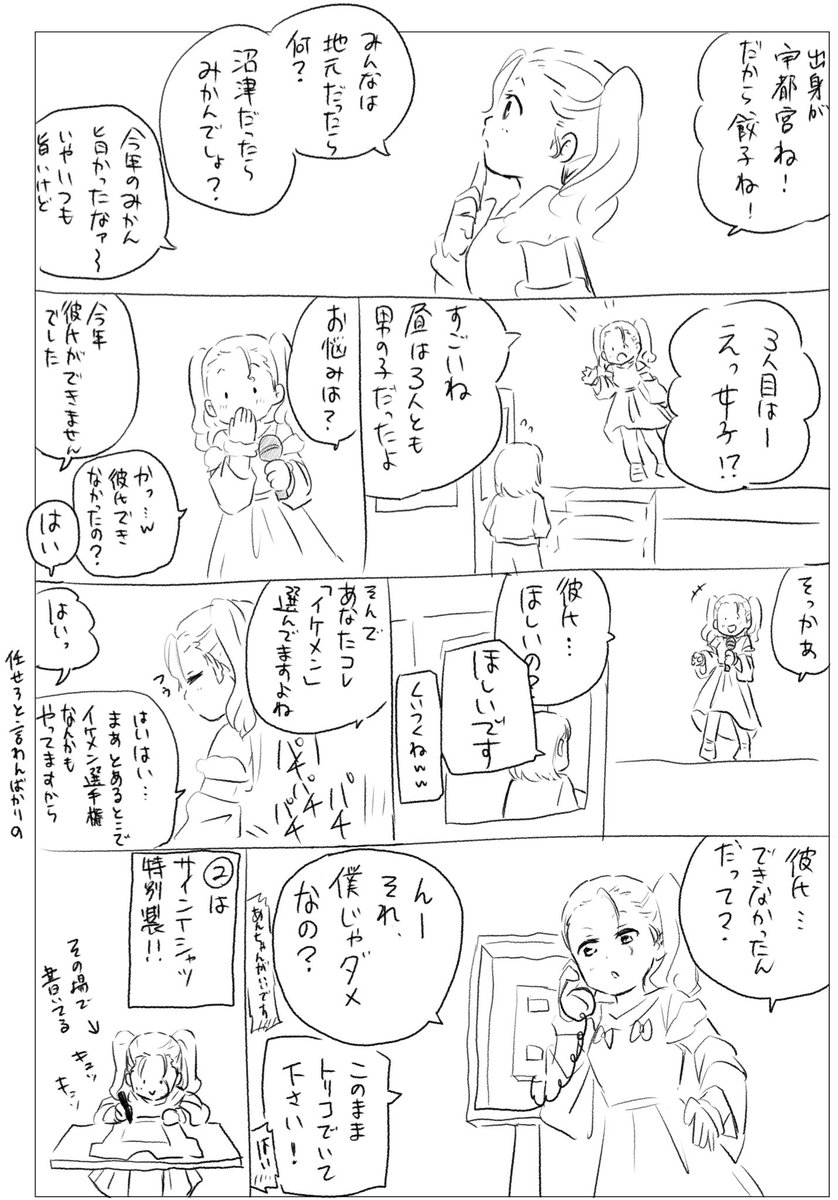 出身が
宇都宮ね！
だから餃子ね！
みんなは
地元だったら
何？
沼津だったら
みかんでしょ？
今年のみかん
旨かったなァ〜
いやいつも
旨いけど
3人目はー
えっ女子!?
すごいね
昼は3人とも
男の子だったよ
お悩みは？
今年
彼氏ができません
でした
かっ…w
彼氏でき
なかったの？
はい
そっかぁ
彼氏…
ほしいの？
ほしいです
くいつくねww
そんで
あなたコレ
「イケメン」
選んでますよね
パチ
パチ
パチ
パチ
はいっ
はいはい…
まぁとあるとこで
イケメン選手権
なんかも
やってますから
任せろと言わんばかりの
彼氏…
できなかったん
だって？
んー
それ、
僕じゃダメ
なの？
あんちゃんがいいです
このまま
トリコでいて
下さい！
はい
②は
サインTシャツ
特別製!!
その場で
書いてる
キュッ
キュッ